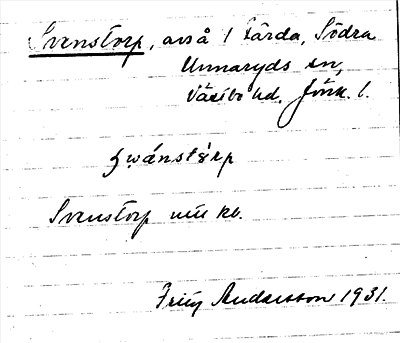 Svenstorp, avså i Kärda, Södra
Unnaryds sn,
Västbo hd, Jönk. l.
swánstòrp
Svenstorp
Andersson 1931.